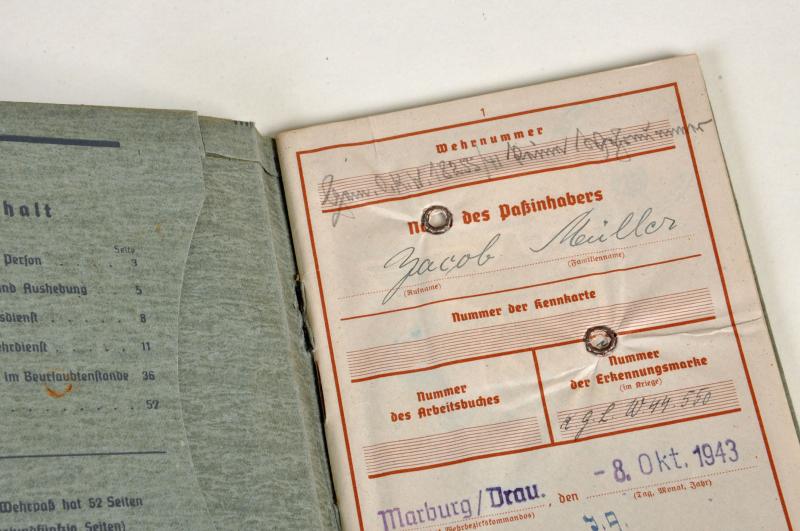 halt
Seite
Person . . . . . . 3
und Aushebung . . . . 5
sdienst . . . . . 8
hrdienst . . . . . 11
im Beurlaubtenstande 36
. . . . . . . . . 52
Wehrpaß hat 52 Seiten
Seiten)
1
Wehrnummer
des Paßinhabers
Jacob Müller
(Rufname) (Familienname)
Nummer der Kennkarte
Nummer
des Arbeitsbuches
Nummer
der Erkennungsmarke
(im Kriege)
W 44 550
Marburg/Drau. , den -8. Okt. 1943
Wehrbezirkskommandos) (Tag, Monat, Jahr)